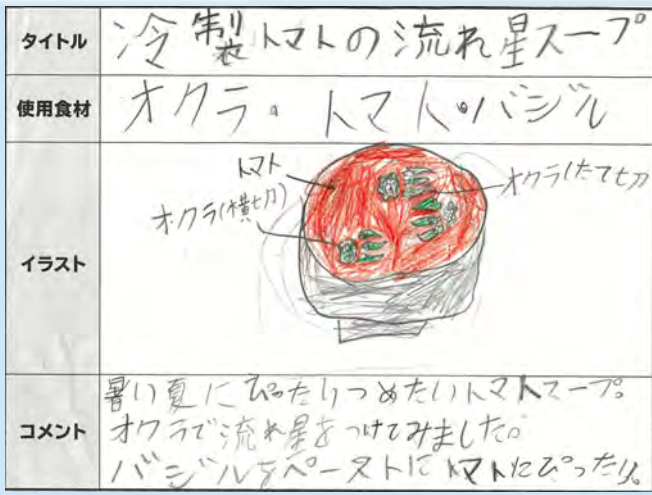 タイトル
冷製トマトの流れ星スープ
使用食材
オクラ・トマト・バジル
イラスト
トマト
オクラ(横切)
オクラ(たて切)
コメント
暑い夏にぴったりつめたいトマトスープ。
オクラで流れ星をつけてみました。
バジルをペーストにトマトにぴったり。